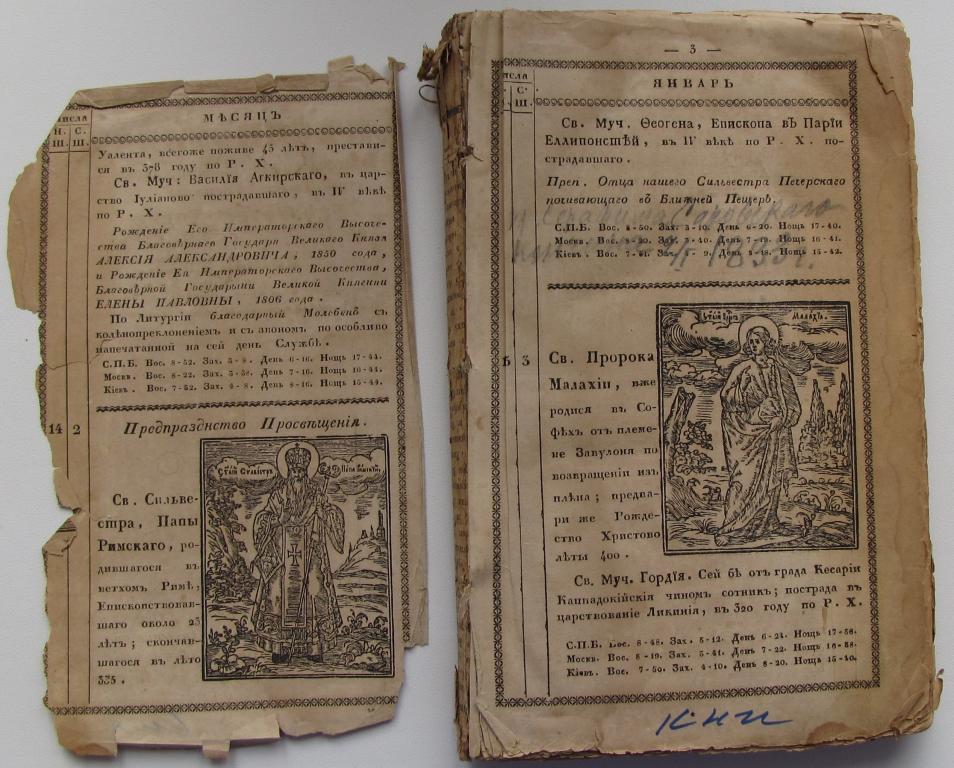 МѢСЯЦЪ
Н. С.
Ш. Ш.
Уалента, всегоже поживе 45 лѣтъ, престави-
ся въ 378 году по Р. Х.
Св. Муч: Василія Агкирскаго, въ цар-
ство Іуліаново пострадавшаго, въ IV вѣкѣ
по Р. Х.
Рожденіе Его Императорскаго Высоче-
ства Благовѣрнаго Государя Великаго Князя
АЛЕКСІЯ АЛЕКСАНДРОВИЧА, 1850 года,
и Рожденіе Ея Императорскаго Высочества,
Благовѣрной Государыни Великой Княгини
ЕЛЕНЫ ПАВЛОВНЫ, 1806 года.
По Литургіи благодарный Молебенъ съ
колѣнопреклоненіемъ и съ звономъ по особливо
напечатанной на сей день Службѣ.
С.П.Б. Вос. 8-52. Зах. 3-8. День 6-16. Нощь 17-44.
Москв. Вос. 8-22. Зах. 3-38. День 7-16. Нощь 16-44.
Кіевъ. Вос. 7-52. Зах. 4-8. День 8-16. Нощь 15-44.
14 2 Предпразднство Просвѣщенія.
Св. Сильве-
стра, Папы
Римскаго, ро-
дившагося въ
ветхомъ Римѣ;
Епископствовав-
шаго около 23
лѣтъ; скончав-
шагося въ лѣто
335.
— 3 —
ЯНВАРЬ
С.
Ш.
Св. Муч. Ѳеогена, Епископа въ Паріи
Еллипонстѣй, въ IV вѣкѣ по Р. Х. по-
страдавшаго.
Преп. Отца нашего Сильвестра Печерскаго
почивающаго въ Ближней Пещерѣ.
Серафима Саровскаго
1833 г.
С.П.Б. Вос. 8-50. Зах. 3-10. День 6-20. Нощь 17-40.
Москв. Вос. 8-20. Зах. 3-40. День 7-19. Нощь 16-41.
Кіевъ. Вос. 7-51. Зах. 4-9. День 8-18. Нощь 15-42.
3 Св. Пророка
Малахіи, иже
родися въ Со-
фѣхъ отъ племе-
не Завулоня по
возвращеніи изъ
плѣна; предва-
ри же Рожде-
ство Христово
лѣты 400.
Св. Муч. Гордія. Сей бѣ отъ града Кесаріи
Каппадокійскія чиномъ сотникъ; пострада въ
царствованіе Ликинія, въ 320 году по Р. Х.
С.П.Б. Вос. 8-48. Зах. 3-12. День 6-24. Нощь 17-36.
Москв. Вос. 8-19. Зах. 3-41. День 7-22. Нощь 16-38.
Кіевъ. Вос. 7-50. Зах. 4-10. День 8-20. Нощь 15-40.